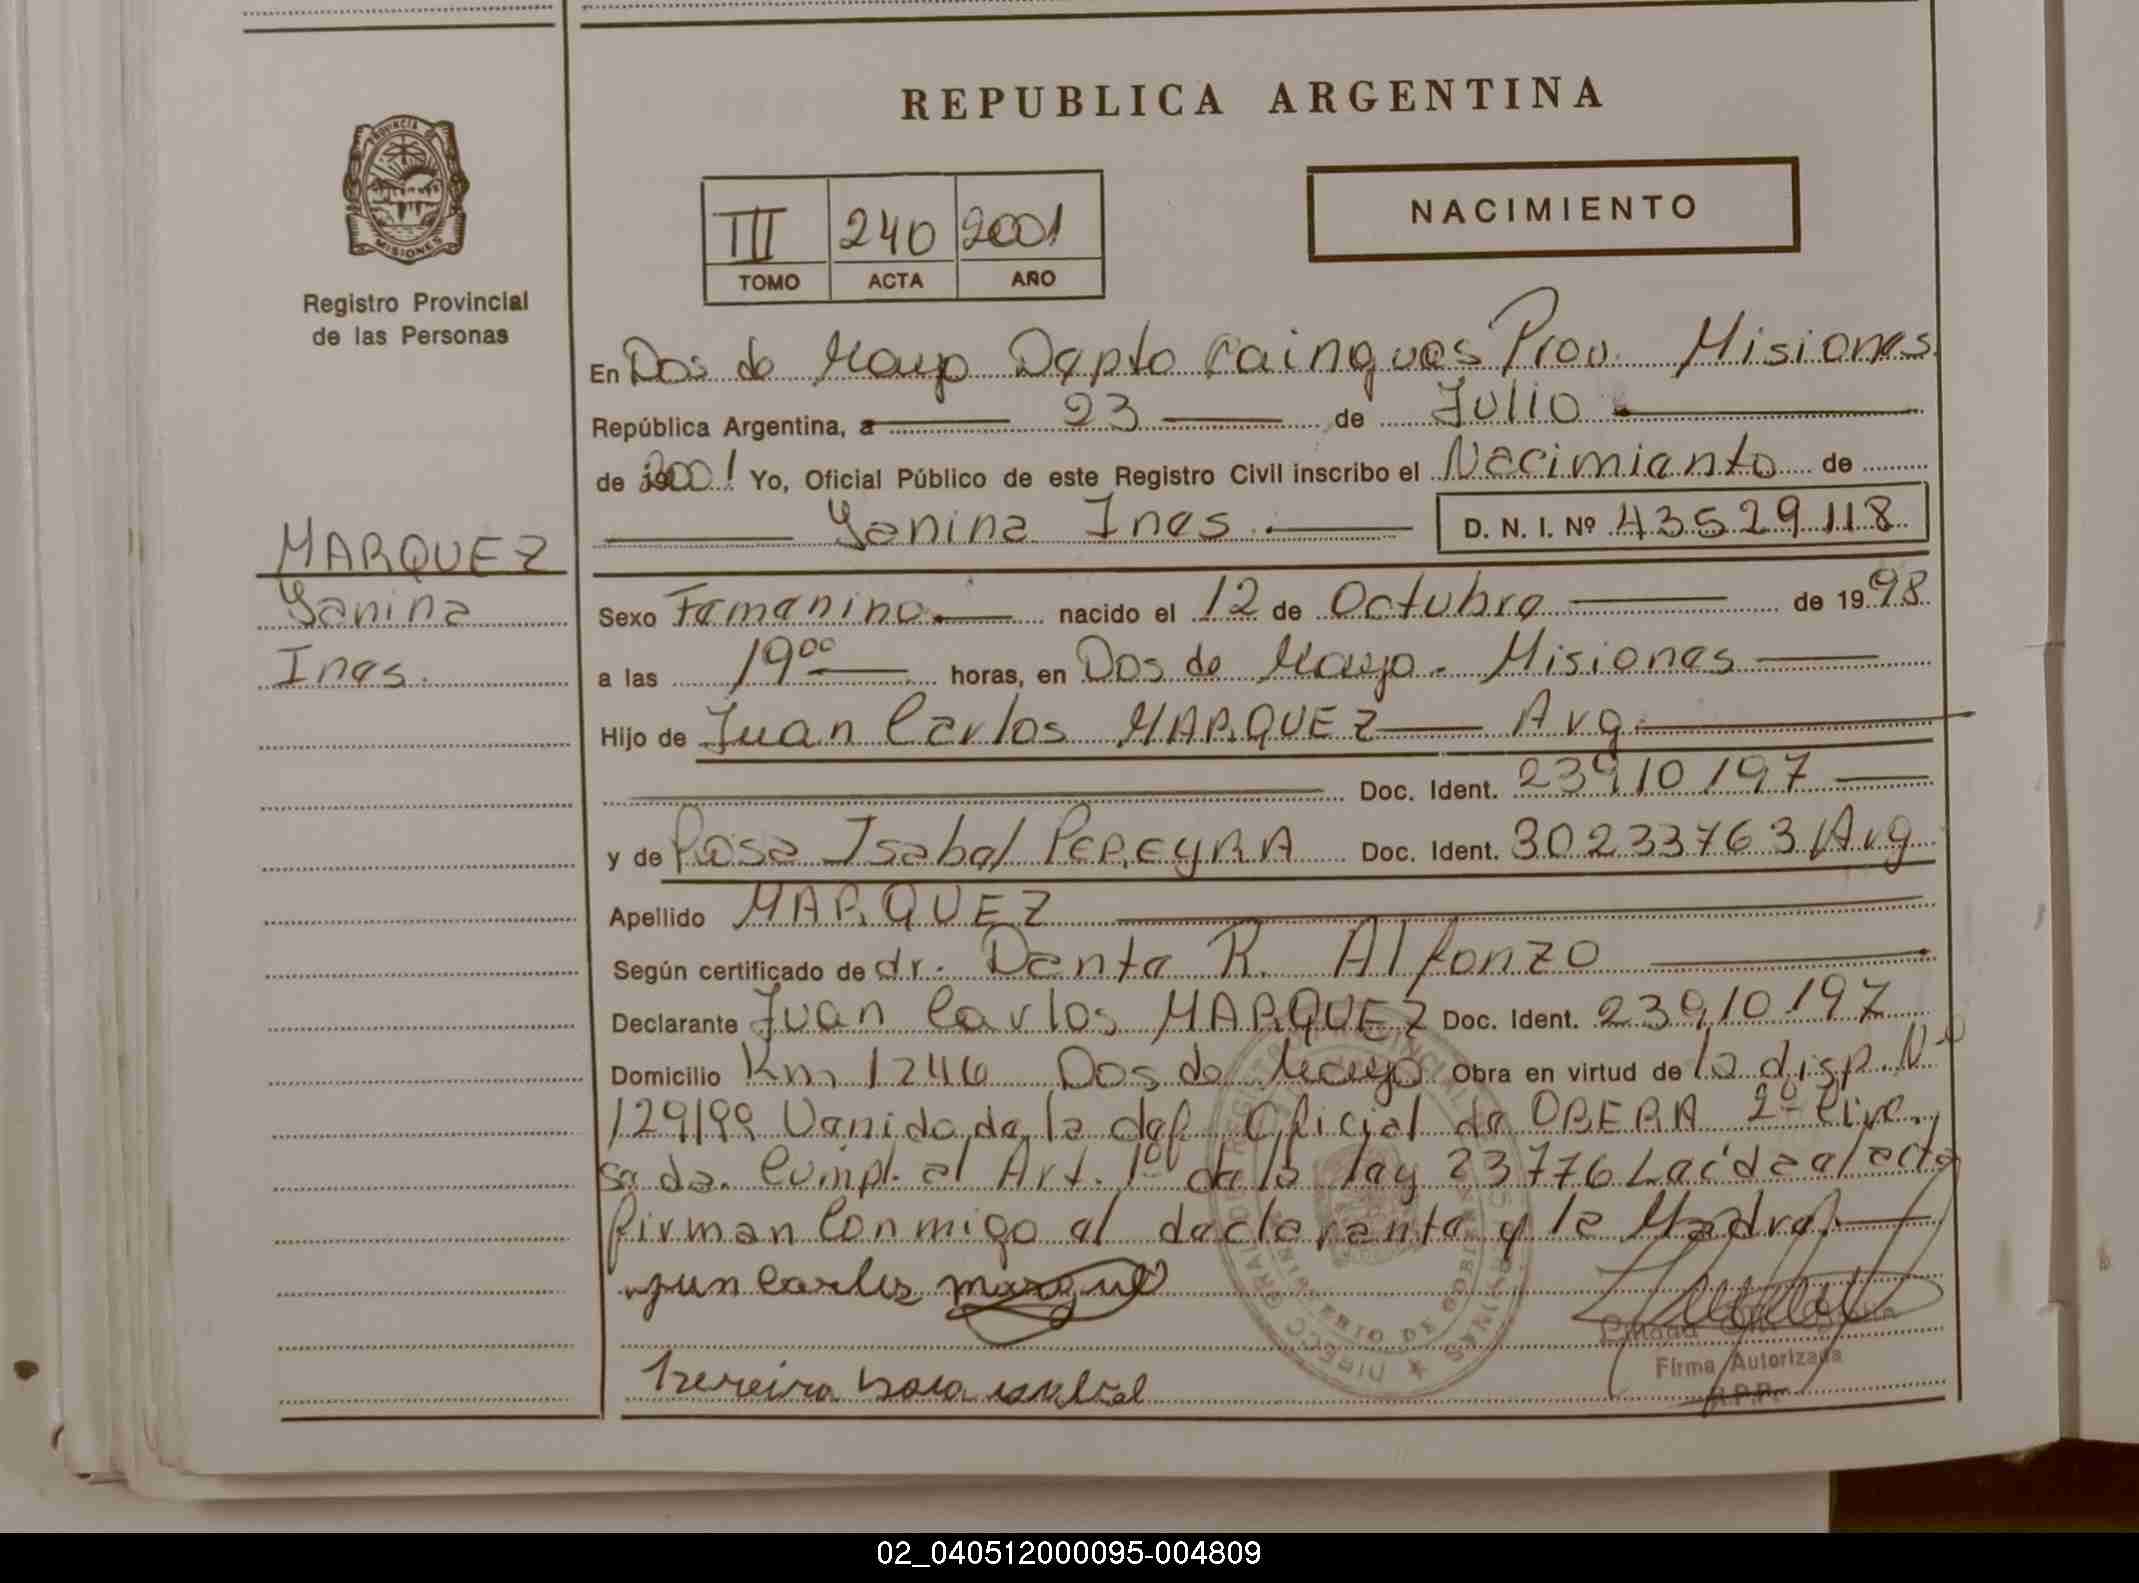 REPUBLICA ARGENTINA
PROVINCIA DE
MISIONES
Registro Provincial
de las Personas
III 240 2001
TOMO ACTA AÑO
NACIMIENTO
En Dos de Mayo Depto Cainguas Prov. Misiones
República Argentina, a 23 de Julio
de 2001 Yo, Oficial Público de este Registro Civil inscribo el Nacimiento de
Yanina Ines D. N. I. Nº 43529118
MARQUEZ
Yanina
Ines.
Sexo Femenino nacido el 12 de Octubre de 1998
a las 19 00 horas, en Dos de Mayo - Misiones
Hijo de Juan Carlos MARQUEZ Arg.
Doc. Ident. 23910197
y de Rosa Isabel PEREYRA Doc. Ident. 30233763 Arg
Apellido MARQUEZ
Según certificado de dr. Dante R. Alfonzo
Declarante Juan Carlos MARQUEZ Doc. Ident. 23910197
Domicilio Km 1246 Dos de Mayo Obra en virtud de la disp. Nº
129/99 Venida de la def. Oficial de OBERA 2º Circ.
Cumpl. el Art. 1º de la ley 23776 Leida el acta
firman Conmigo el declarante y la Madre.
Juan Carlos Marquez
Pereira Rosa Isabel
Firma Autorizada
R.P.P.
02_040512000095-004809